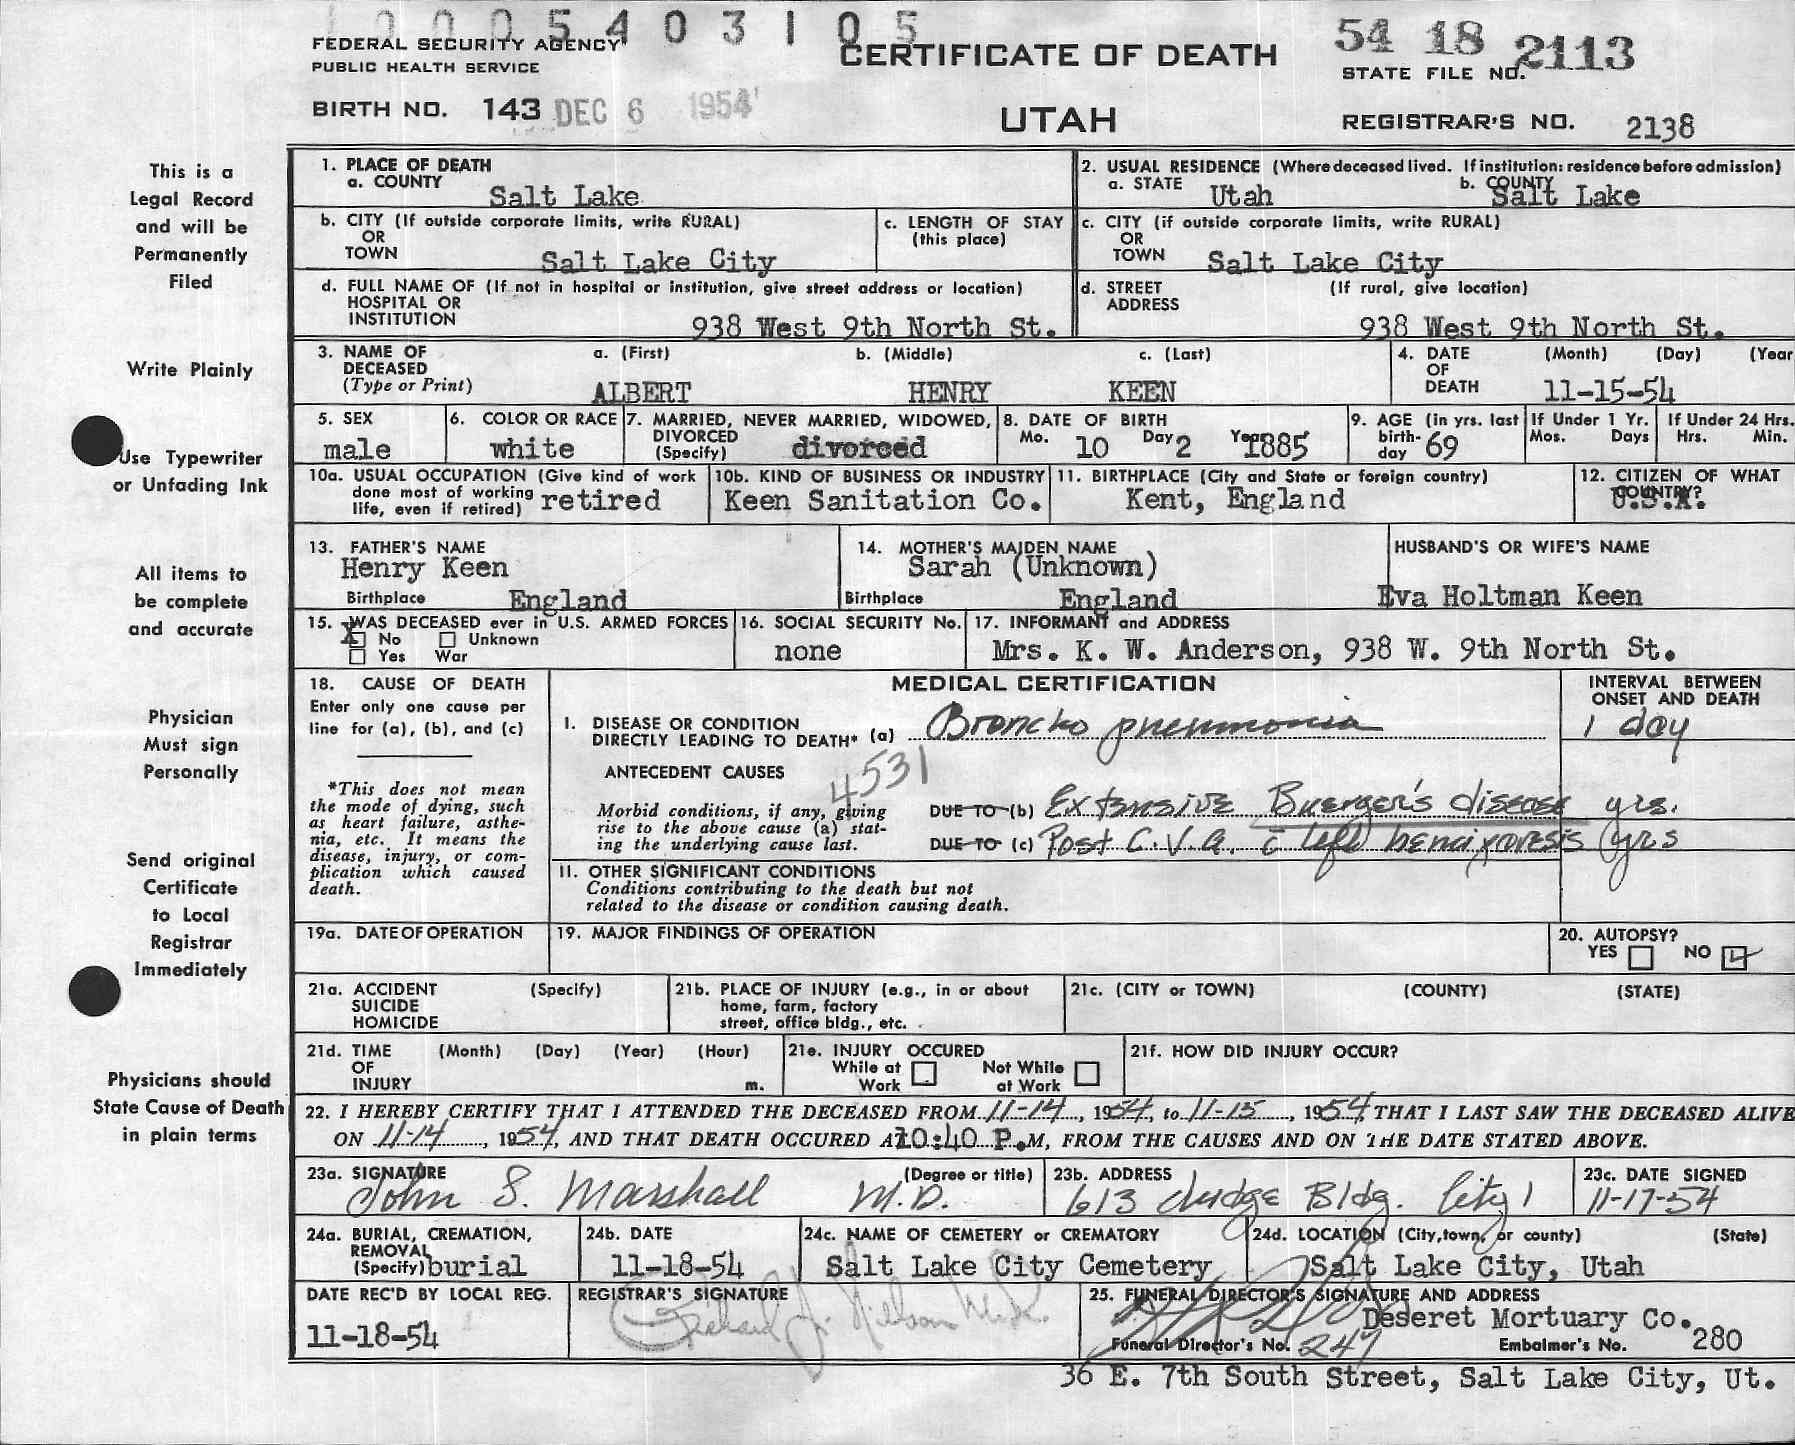 1 0 0 0 5 4 0 3 1 0 5
FEDERAL SECURITY AGENCY
PUBLIC HEALTH SERVICE
CERTIFICATE OF DEATH
54 18 2113
STATE FILE NO.
BIRTH NO. 143 DEC 6 1954
UTAH
REGISTRAR'S NO. 2138
This is a
Legal Record
and will be
Permanently
Filed
Write Plainly
Use Typewriter
or Unfading Ink
All items to
be complete
and accurate
Physician
Must sign
Personally
Send original
Certificate
to Local
Registrar
Immediately
Physicians should
State Cause of Death
in plain terms
1. PLACE OF DEATH
a. COUNTY Salt Lake
2. USUAL RESIDENCE (Where deceased lived. If institution: residence before admission)
a. STATE Utah b. COUNTY Salt Lake
b. CITY (If outside corporate limits, write RURAL)
OR
TOWN Salt Lake City
c. LENGTH OF STAY
(this place)
c. CITY (if outside corporate limits, write RURAL)
OR
TOWN Salt Lake City
d. FULL NAME OF (If not in hospital or institution, give street address or location)
HOSPITAL OR
INSTITUTION 938 West 9th North St.
d. STREET (If rural, give location)
ADDRESS
938 West 9th North St.
3. NAME OF a. (First) b. (Middle) c. (Last)
DECEASED
(Type or Print) ALBERT HENRY KEEN
4. DATE (Month) (Day) (Year
OF
DEATH 11-15-54
5. SEX
male
6. COLOR OR RACE
white
7. MARRIED, NEVER MARRIED, WIDOWED,
DIVORCED
(Specify) divorced
8. DATE OF BIRTH
Mo. 10 Day 2 Year 1885
9. AGE (in yrs. last
birth-
day 69
If Under 1 Yr.
Mos. Days
If Under 24 Hrs.
Hrs. Min.
10a. USUAL OCCUPATION (Give kind of work
done most of working
life, even if retired) retired
10b. KIND OF BUSINESS OR INDUSTRY
Keen Sanitation Co.
11. BIRTHPLACE (City and State or foreign country)
Kent, England
12. CITIZEN OF WHAT
COUNTRY?
U.S.A.
13. FATHER'S NAME
Henry Keen
Birthplace England
14. MOTHER'S MAIDEN NAME
Sarah (Unknown)
Birthplace England
HUSBAND'S OR WIFE'S NAME
Eva Holtman Keen
15. WAS DECEASED ever in U.S. ARMED FORCES
X No Unknown
Yes War
16. SOCIAL SECURITY No.
none
17. INFORMANT and ADDRESS
Mrs. K. W. Anderson, 938 W. 9th North St.
18. CAUSE OF DEATH
Enter only one cause per
line for (a), (b), and (c)
*This does not mean
the mode of dying, such
as heart failure, asthe-
nia, etc. It means the
disease, injury, or com-
plication which caused
death.
MEDICAL CERTIFICATION
INTERVAL BETWEEN
ONSET AND DEATH
I. DISEASE OR CONDITION
DIRECTLY LEADING TO DEATH* (a) Broncho pneumonia 1 day
ANTECEDENT CAUSES
4531
Morbid conditions, if any, giving
rise to the above cause (a) stat-
ing the underlying cause last.
DUE TO (b) Extensive Buerger's disease yrs.
DUE TO (c) Post C.V.A. c̄ left hemiparesis yrs
II. OTHER SIGNIFICANT CONDITIONS
Conditions contributing to the death but not
related to the disease or condition causing death.
19a. DATE OF OPERATION
19. MAJOR FINDINGS OF OPERATION
20. AUTOPSY?
YES NO
21a. ACCIDENT (Specify)
SUICIDE
HOMICIDE
21b. PLACE OF INJURY (e.g., in or about
home, farm, factory
street, office bldg., etc.
21c. (CITY or TOWN) (COUNTY) (STATE)
21d. TIME (Month) (Day) (Year) (Hour)
OF
INJURY m.
21e. INJURY OCCURED
While at Work Not While at Work
21f. HOW DID INJURY OCCUR?
22. I HEREBY CERTIFY THAT I ATTENDED THE DECEASED FROM 11-14, 1954, to 11-15, 1954, THAT I LAST SAW THE DECEASED ALIVE
ON 11-14, 1954, AND THAT DEATH OCCURED AT 10:40 P.M, FROM THE CAUSES AND ON THE DATE STATED ABOVE.
23a. SIGNATURE (Degree or title)
John S. Marshall M.D.
23b. ADDRESS
613 Judge Bldg. City 1
23c. DATE SIGNED
11-17-54
24a. BURIAL, CREMATION,
REMOVAL
(Specify) burial
24b. DATE
11-18-54
24c. NAME OF CEMETERY or CREMATORY
Salt Lake City Cemetery
24d. LOCATION (City, town, or county) (State)
Salt Lake City, Utah
DATE REC'D BY LOCAL REG.
11-18-54
REGISTRAR'S SIGNATURE
25. FUNERAL DIRECTOR'S SIGNATURE AND ADDRESS
Deseret Mortuary Co.
Funeral Director's No. 247 Embalmer's No. 280
36 E. 7th South Street, Salt Lake City, Ut.